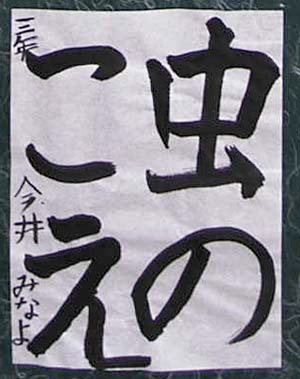 虫の
こえ
三年 今井 みなよ